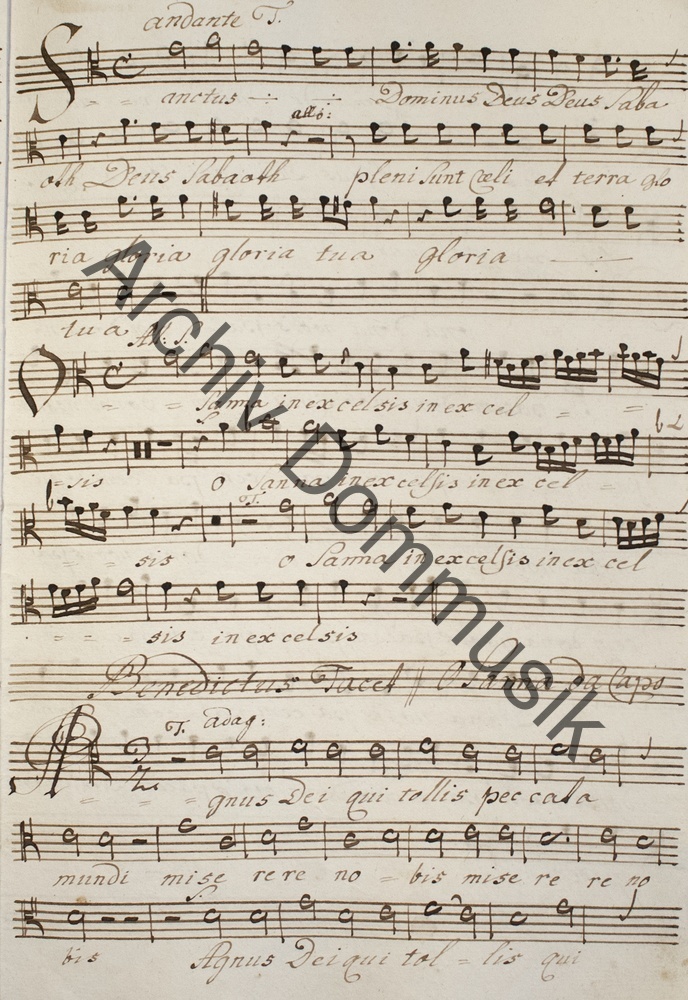 andante T.
Sanctus Dominus Deus Deus Saba
allo:
oth Deus Sabaoth pleni sunt Cœli et terra glo
ria gloria gloria tua gloria
tua
All. S.
Osanna in excelsis in ex cel
sis O Sanna in excelsis in ex cel
T.
sis O Sanna in excelsis in ex cel
sis in excelsis
Benedictus Tacet // O Sanna Da Capo
T. adag:
Agnus Dei qui tollis peccata
mundi mise rere no = bis mise re re no
S.
bis Agnus Dei qui tol = lis qui
Archiv Dommusik